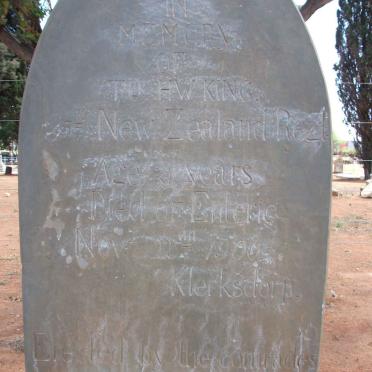 IN
MEMORY
OF
H.W. KING,
New Zealand Regt
Aged years
Died of Enteric
Nov 1900
Klerksdorp.
Erected by the comrades